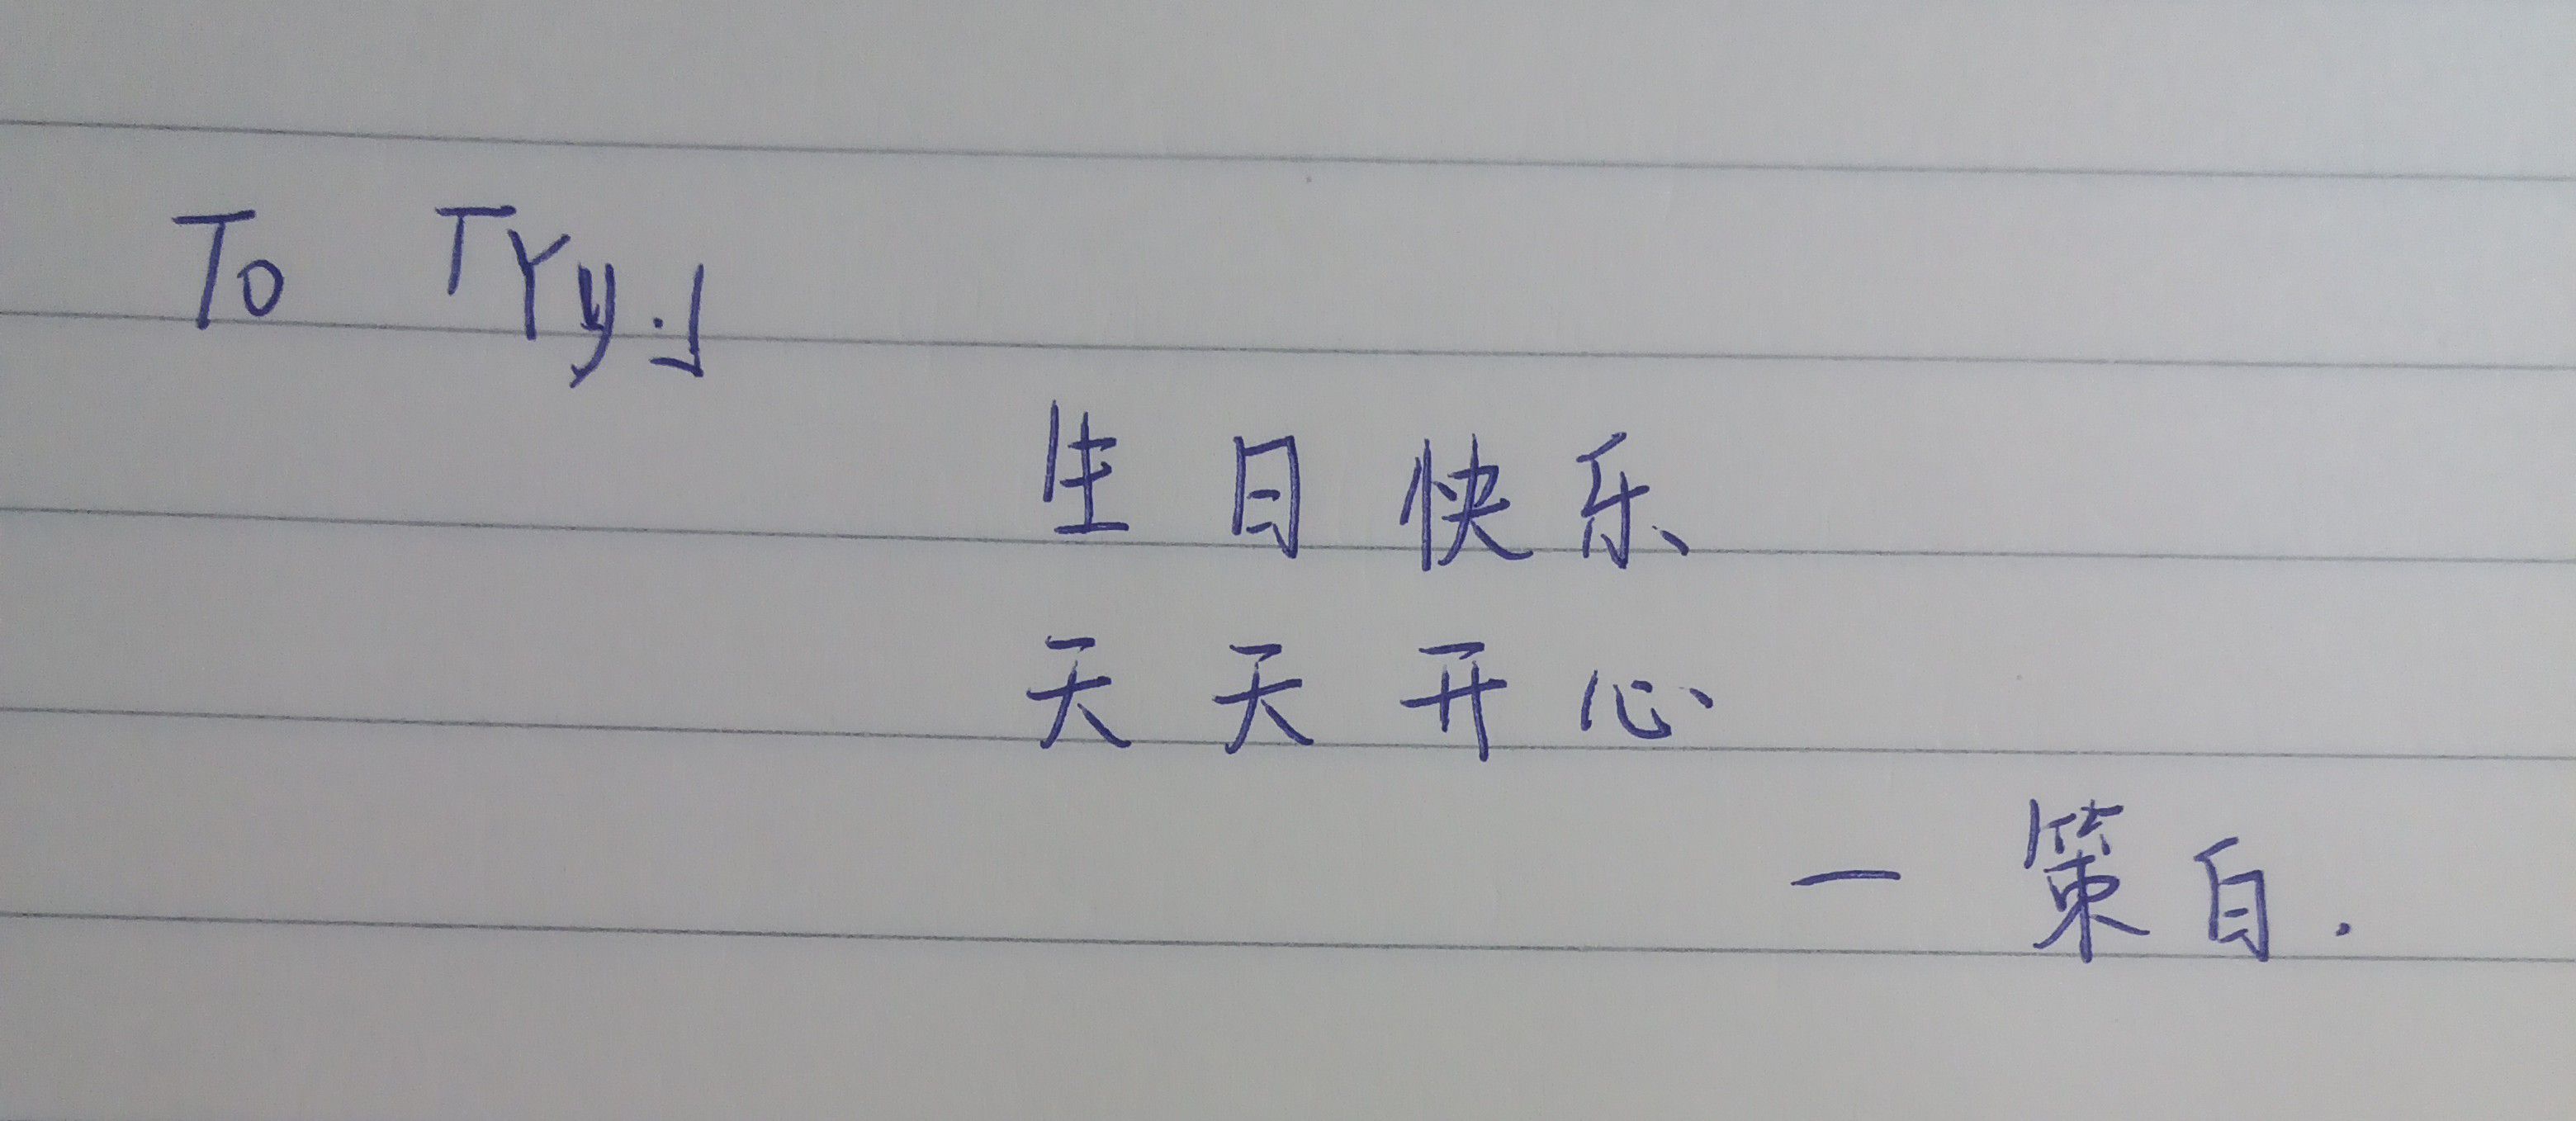 To TYyj
生日快乐
天天开心
— 策白.